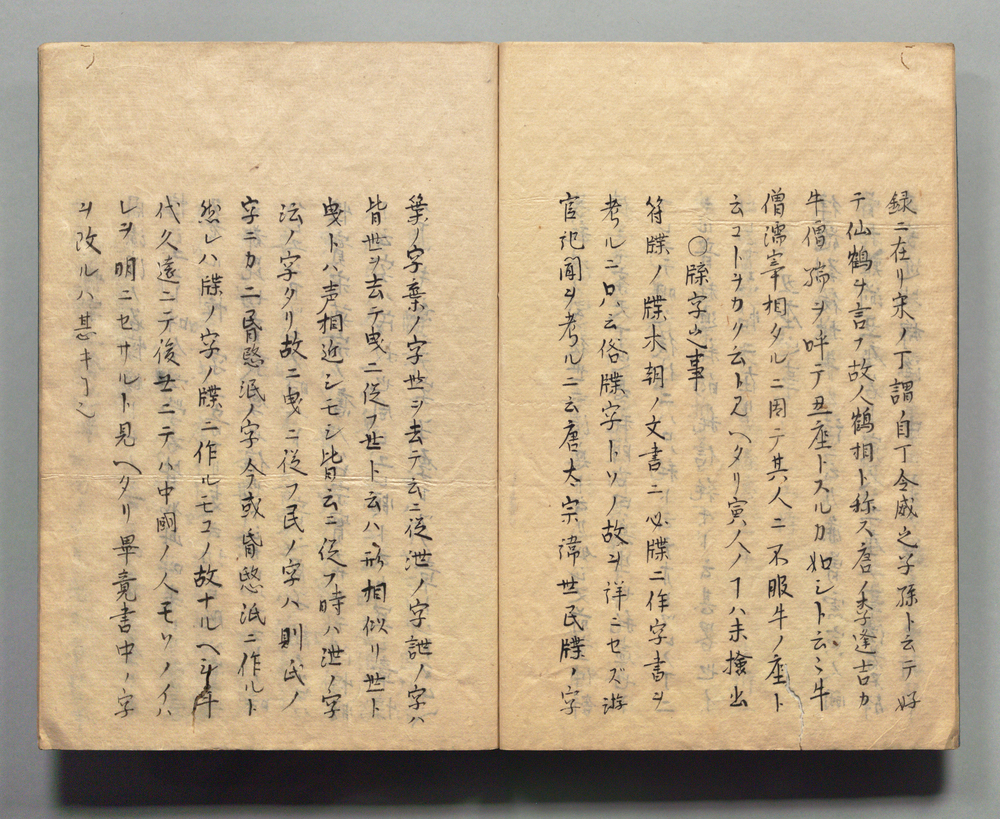 録ニ在リ宋ノ丁謂自丁令威之子孫ト云テ好
テ仙鶴ヲ言フ故人鶴相ト称ス唐ノ李逢吉カ
牛僧孺ヲ呼テ丑座トスルカ如シト云ミ牛
僧濡宰相タルニ因テ其人ニ不服牛ノ座ト
云コトヲカク云ト見ヘタリ寅人ノヿハ未撿出
〇牒字之事
符牒ノ牒本朝ノ文書ニ必牒ニ作字書ヲ
考ルニ只云俗牒字トソノ故ヲ詳ニセズ游
官紀聞ヲ考ルニ云唐太宗諱世民牒ノ字
葉ノ字棄ノ字世ヲ去テ云ニ従泄ノ字詍ノ字ハ
皆世ヲ去テ曳ニ従フ世ト云ハ形相似リ世ト
曳トハ声相近シモシ皆云ニ従フ時ハ泄ノ字
沄ノ字タリ故ニ曳ニ従フ民ノ字ハ則氏ノ
字ニカ二昏愍泯ノ字今或昏愍泜ニ作ルト
然レハ牒ノ字ノ牒ニ作ルモコノ故ナルヘシ年
代久遠ニテ後世ニテハ中国ノ人モソノイハ
レヲ明ニセサルト見ヘタリ畢竟書中ノ字
ヲ改ルハ甚キヿ也